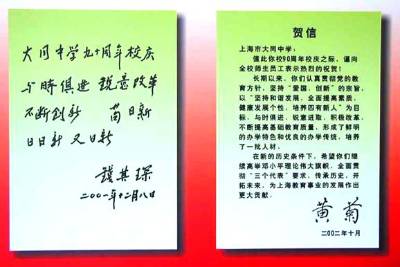 大同中学九十周年校庆
与时俱进 锐意改革
不断创新 苟日新
日日新 又日新
钱其琛
二〇〇一年十二月八日
贺信
上海市大同中学:
值此你校90周年校庆之际,谨向
全校师生员工表示热烈的祝贺!
长期以来,你们认真贯彻党的教
育方针,坚持“爱国、创新”的宗旨,
以“坚持和谐发展,全面提高素质,
健康发展个性,培养四有新人”为目
标,与时俱进,锐意进取,积极改革,
不断提高基础教育质量,形成了鲜明
的办学特色和优良的办学传统,培养
了一批人材。
在新的历史条件下,希望你们继
续高举邓小平理论伟大旗帜,全面贯
彻“三个代表”要求,传承历史,开
拓未来,为上海教育事业的发展作出
更大贡献。
黄菊
二〇〇二年十月